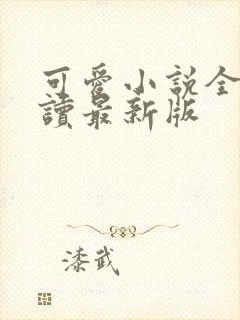 可愛小説全
讀最新版
漆武